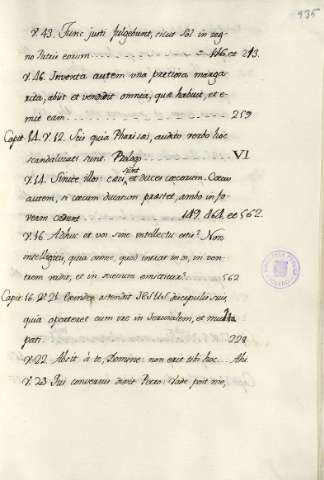 935
V. 43. Tunc justi fulgebunt, sicut Sol in reg-
no Patris eorum - 146. et 213.
V. 46. Inventa autem una pretiosa marga-
rita, abiit et vendidit omnia, quæ habuit, et e-
mit eam 259
Capit. 14. V. 12. Scis quia Pharisæi, audito verbo hoc
scandalizati sunt. Prolog. VI
V. 14. Sinite illos: cæci sunt, et duces cæcorum. Cæcus
autem, si cæcum ducatum præstet, ambo in fo-
veam cadent 149. 464. et 562.
V. 16. Adhuc et vos sine intellectu estis? Non
intelligitis, quia omne, quod intrat in os, in ven-
trem vadit, et in secessum emittitur? 562
Capit. 16. V. 21. Ostendere JESUS discipulis suis,
quia oporteret eum ire in Jerusalem, et multa
pati. 229
V. 22. Absit à te, Domine: non erit tibi hoc. Ibi
V. 23. Qui conversus dixit Petro: Vade post me,